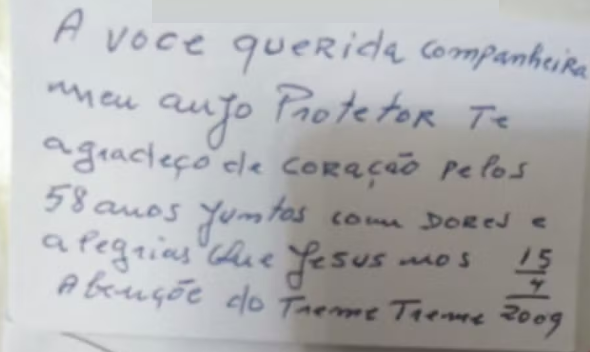 A voce querida companheira
meu anjo Protetor Te
agradeço de coração pelos
58 anos juntos com DORES e
alegrias Que Jesus nos
Abençõe do Treme Treme
15
4
2009